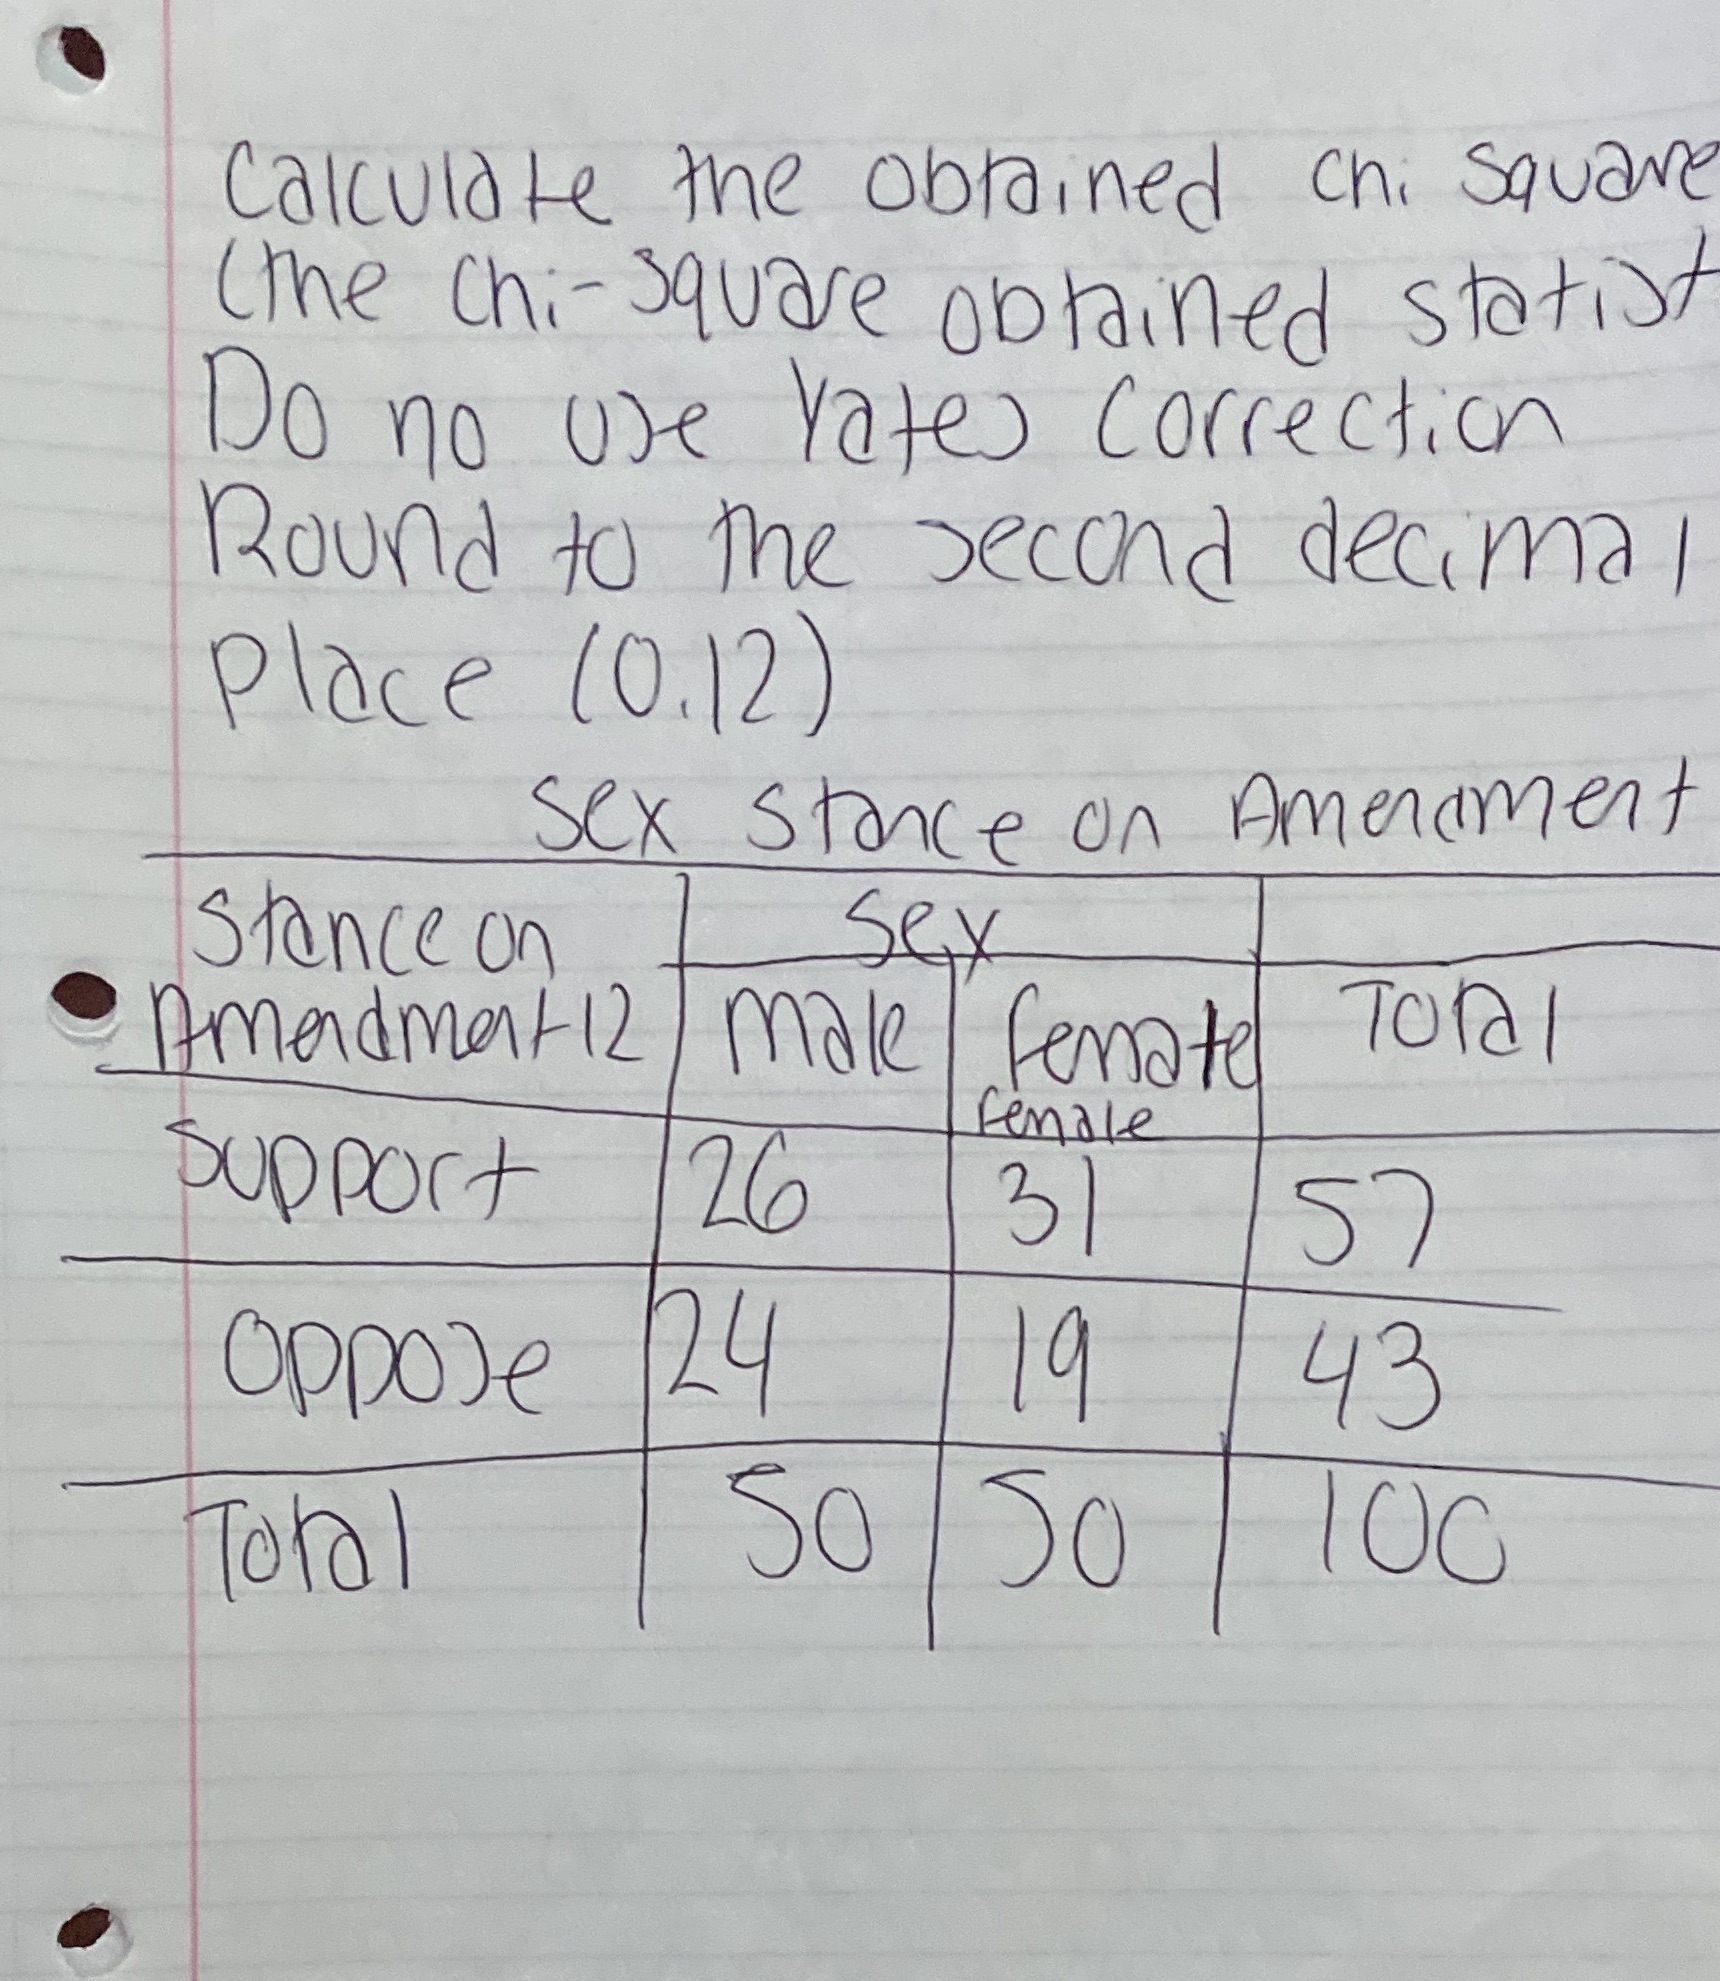 Calculate the obtained chi square
(the chi-square obtained statist
Do no use Yates correction
Round to the second decimal
place (0.12)
Sex Stance on Amendment
Stance on Sex
Amendment 12 Male Female Total
Female
Support 26 31 57
Oppose 24 19 43
Total 50 50 100